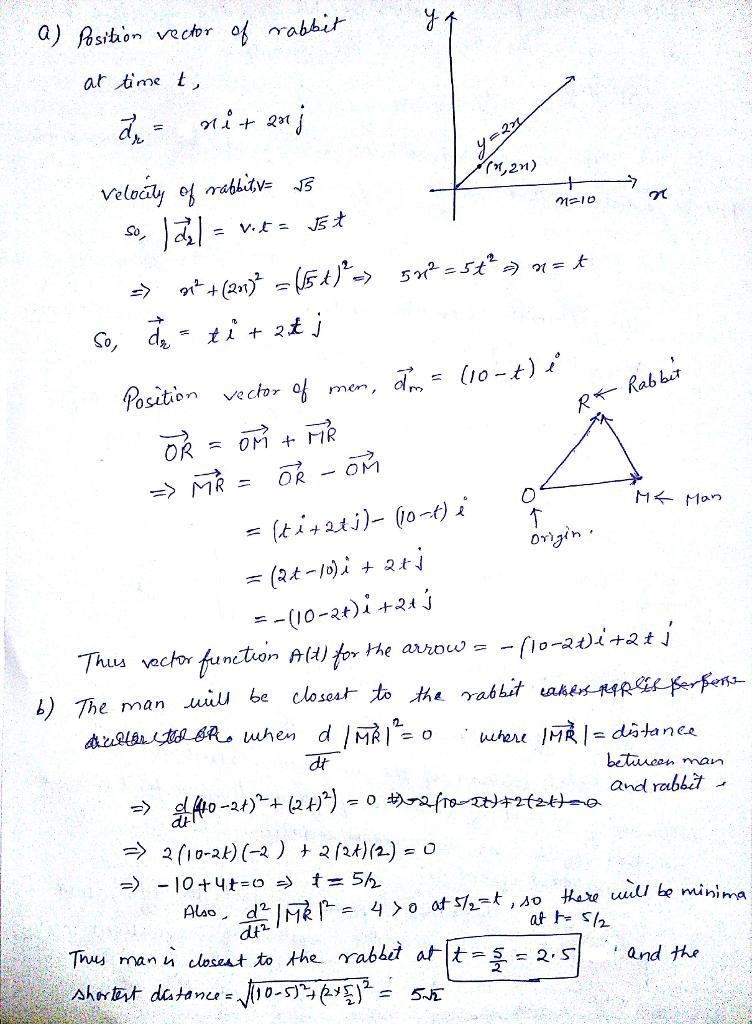 a) Position vector of rabbit
at time t,
d⃗r = x i + 2x j
y
y=2x
(x,2x)
x=10
x
velocity of rabbit, v= √5
so, |d⃗r| = v.t = √5 t
⇒ x² + (2x)² = (√5 t)² ⇒ 5x² = 5t² ⇒ x = t
So, d⃗r = t i + 2t j
Position vector of men, d⃗m = (10-t) i
OR⃗ = OM⃗ + MR⃗
⇒ MR⃗ = OR⃗ - OM⃗
= (t i + 2t j) - (10-t) i
= (2t-10) i + 2t j
= -(10-2t) i + 2t j
R ← Rabbit
O
M ← Man
↑
origin.
Thus vector function A(t) for the arrow = -(10-2t) i + 2t j
b) The man will be closest to the rabbit
when d/dt |MR⃗|² = 0 where |MR⃗| = distance
between man
and rabbit
⇒ d/dt ((10-2t)² + (2t)²) = 0
⇒ 2(10-2t)(-2) + 2(2t)(2) = 0
⇒ -10+4t=0 ⇒ t = 5/2
Also, d²/dt² |MR⃗|² = 4 > 0 at 5/2=t, so there will be minima
at t= 5/2
Thus man is closest to the rabbit at t = 5/2 = 2.5 and the
shortest distance = √((10-5)²+(2×5/2)²) = 5√2